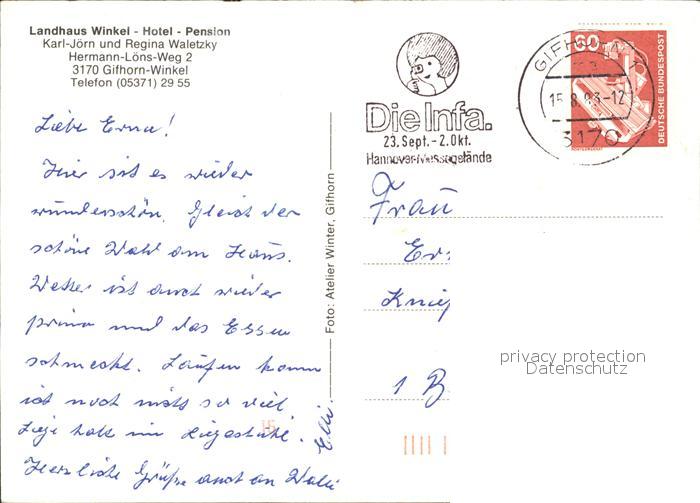 Landhaus Winkel - Hotel - Pension
Karl-Jörn und Regina Waletzky
Hermann-Löns-Weg 2
3170 Gifhorn-Winkel
Telefon (05371) 29 55
Liebe Erna!
Hier ist es wieder
wunderschön. Gleich der
schöne Wald am Haus.
Wetter ist auch wieder
prima und das Essen
schmeckt. Laufen kann
ich noch nicht so viel
Liege halt im Liegestuhl.
Herzliche Grüße auch an Walli
Elli.
Foto: Atelier Winter, Gifhorn
Die Infa.
23. Sept. - 2. Okt.
Hannover-Messegelände
GIFHORN 1
15.8.83-12
3170
60
DEUTSCHE BUNDESPOST
Frau
Er
Knie
1 B
privacy protection
Datenschutz